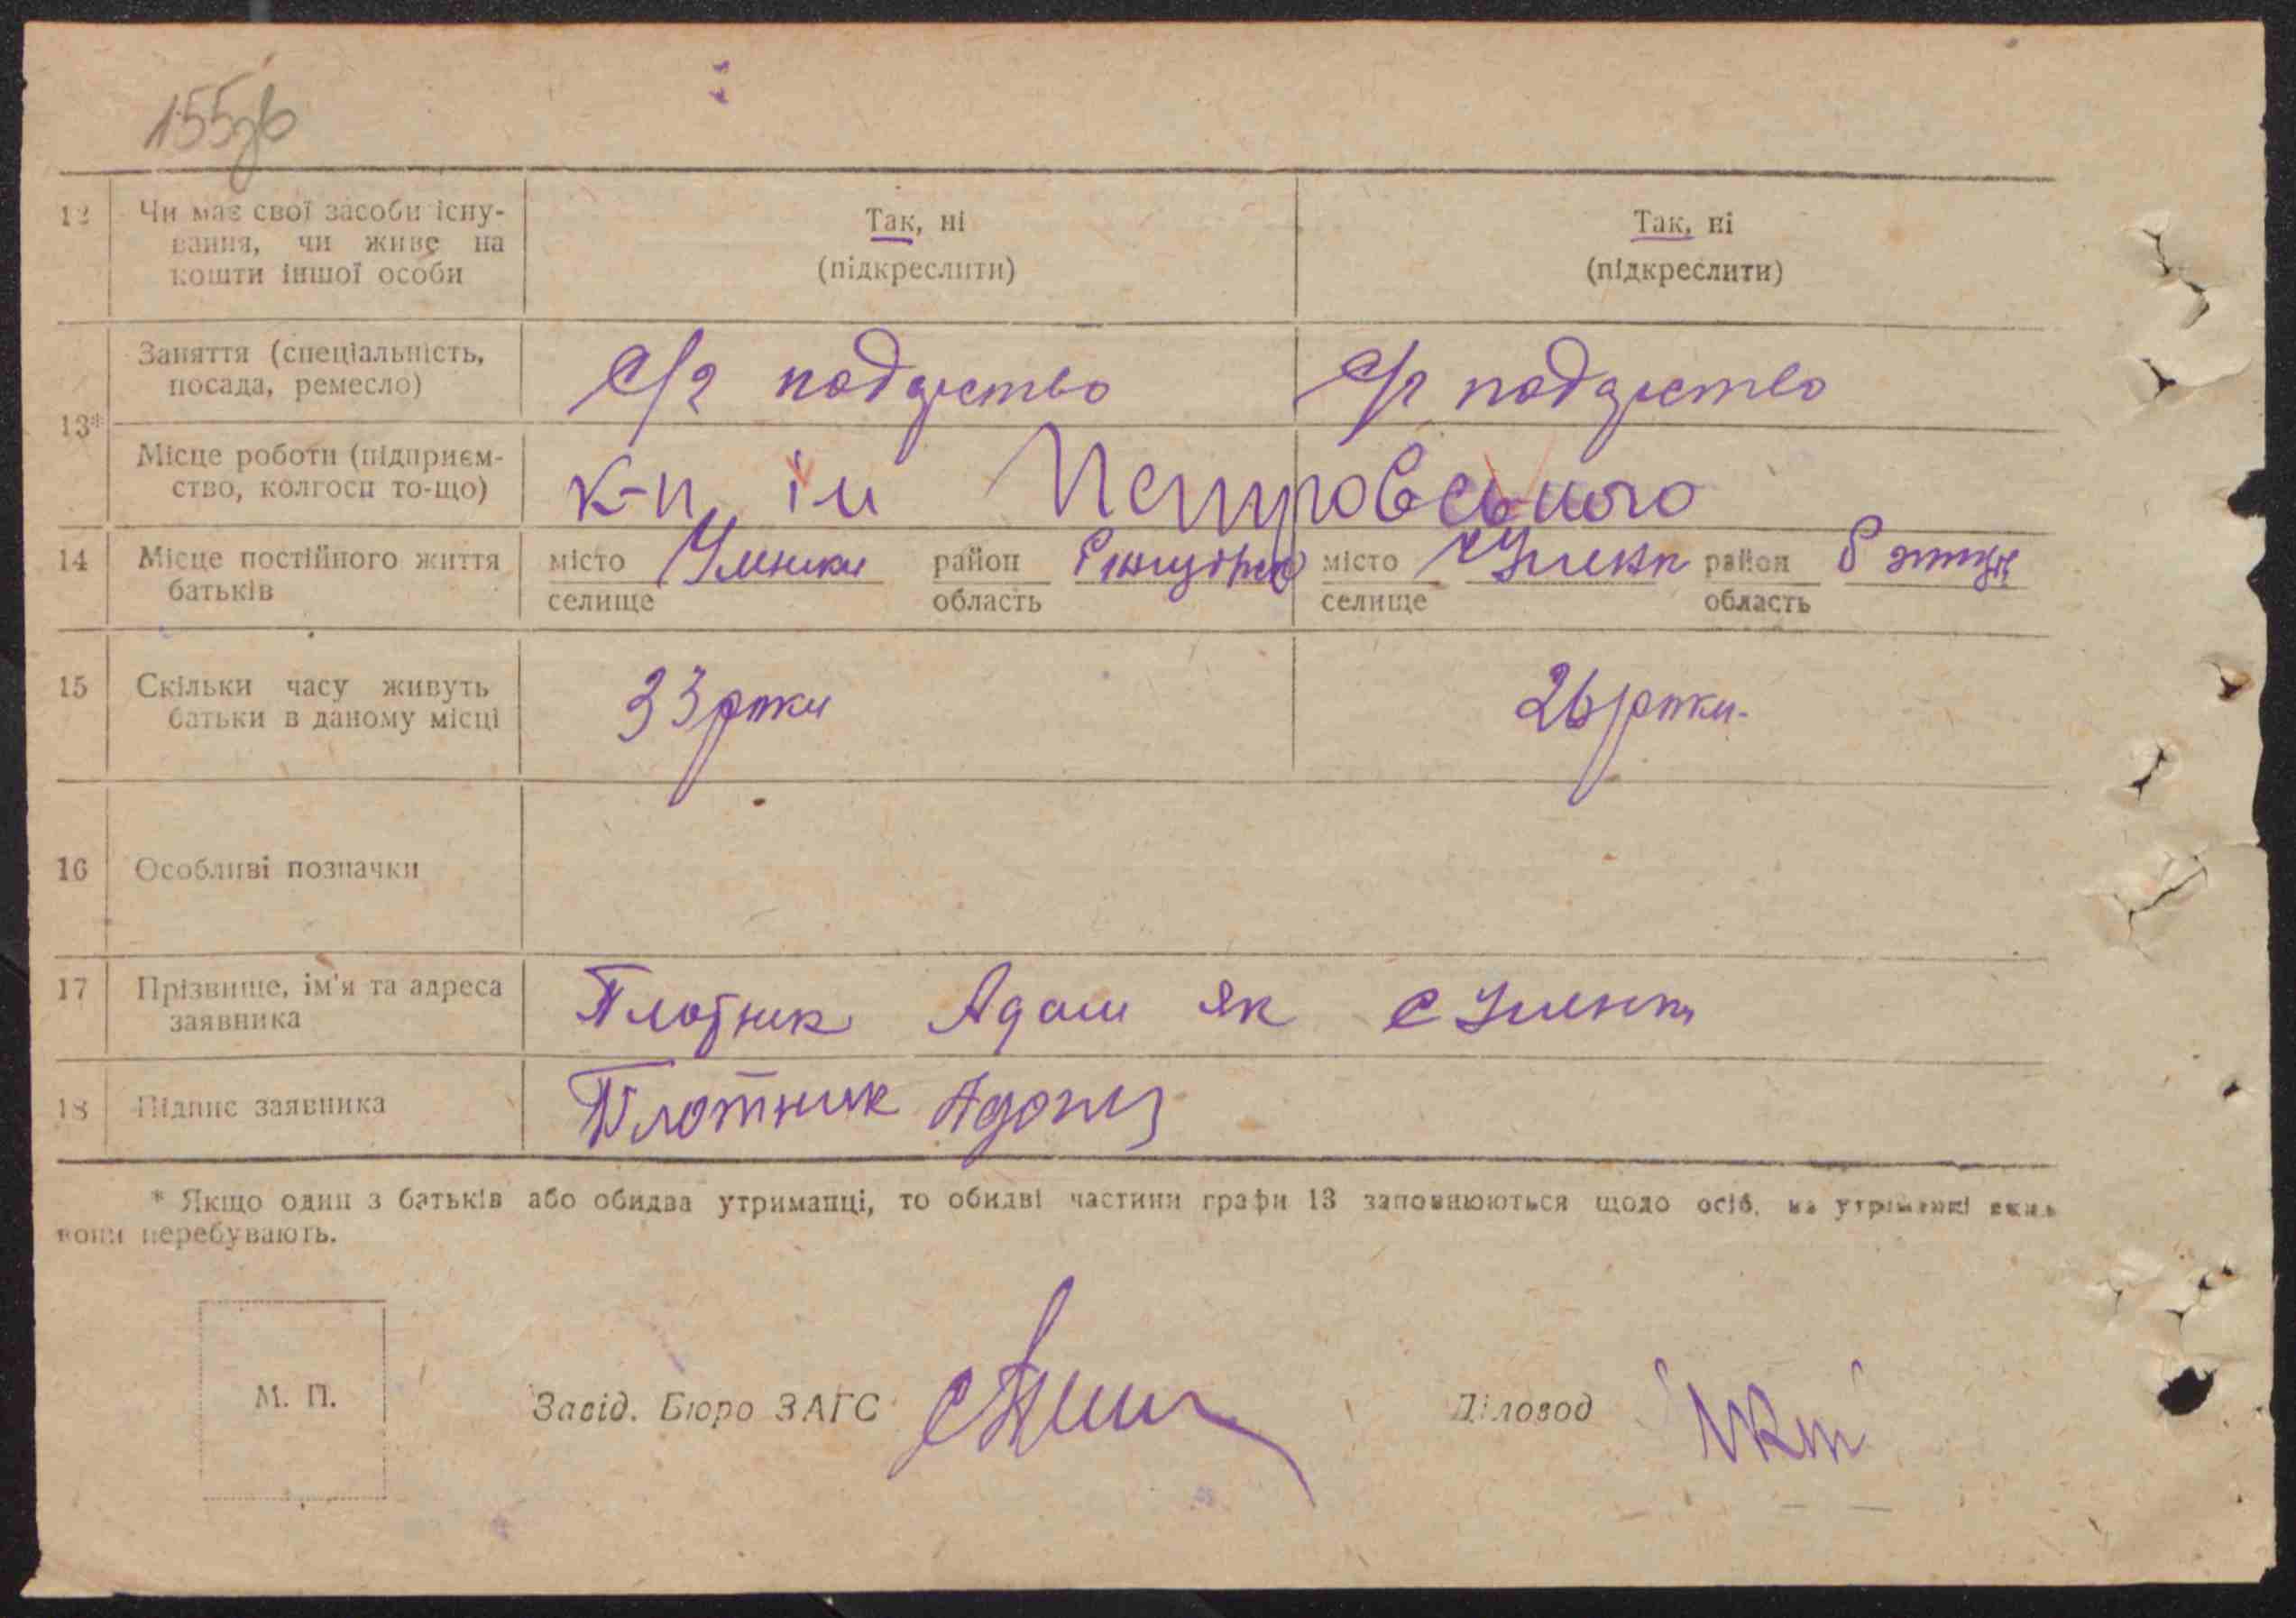 155зв
12 Чи має свої засоби існу-
вання, чи живе на
кошти іншої особи
Так, ні
(підкреслити)
Так, ні
(підкреслити)
13*
Заняття (спеціальність,
посада, ремесло)
с/г
с/г
Місце роботи (підприєм-
ство, колгосп то-що)
к-п ім Петровського
14 Місце постійного життя
батьків
місто
селище
район
область
місто
селище
район
область
15 Скільки часу живуть
батьки в даному місці
33 роки
26 роки
16 Особливі позначки
17 Прізвище, ім'я та адреса
заявника
Плотник Адам як с
18 Підпис заявника
Плотник Адам
* Якщо один з батьків або обидва утриманці, то обидві частини графи 13 заповнюються щодо осіб, на утриманні яких
вони перебувають.
М. П.
Завід. Бюро ЗАГС
Діловод